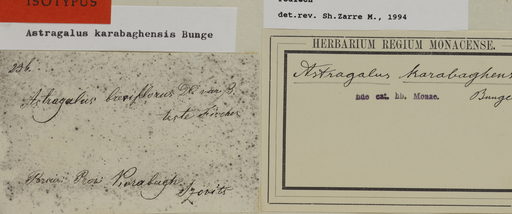 ISOTYPUS
Astragalus karabaghensis Bunge
det.rev. Sh.Zarre M., 1994
236.
Astragalus breviflorus DC var β.
teste Fischer
Prov. Karabagh.
Szovits
HERBARIUM REGIUM MONACENSE.
Astragalus karabaghens
Bunge
nde cat. hb. Monac.